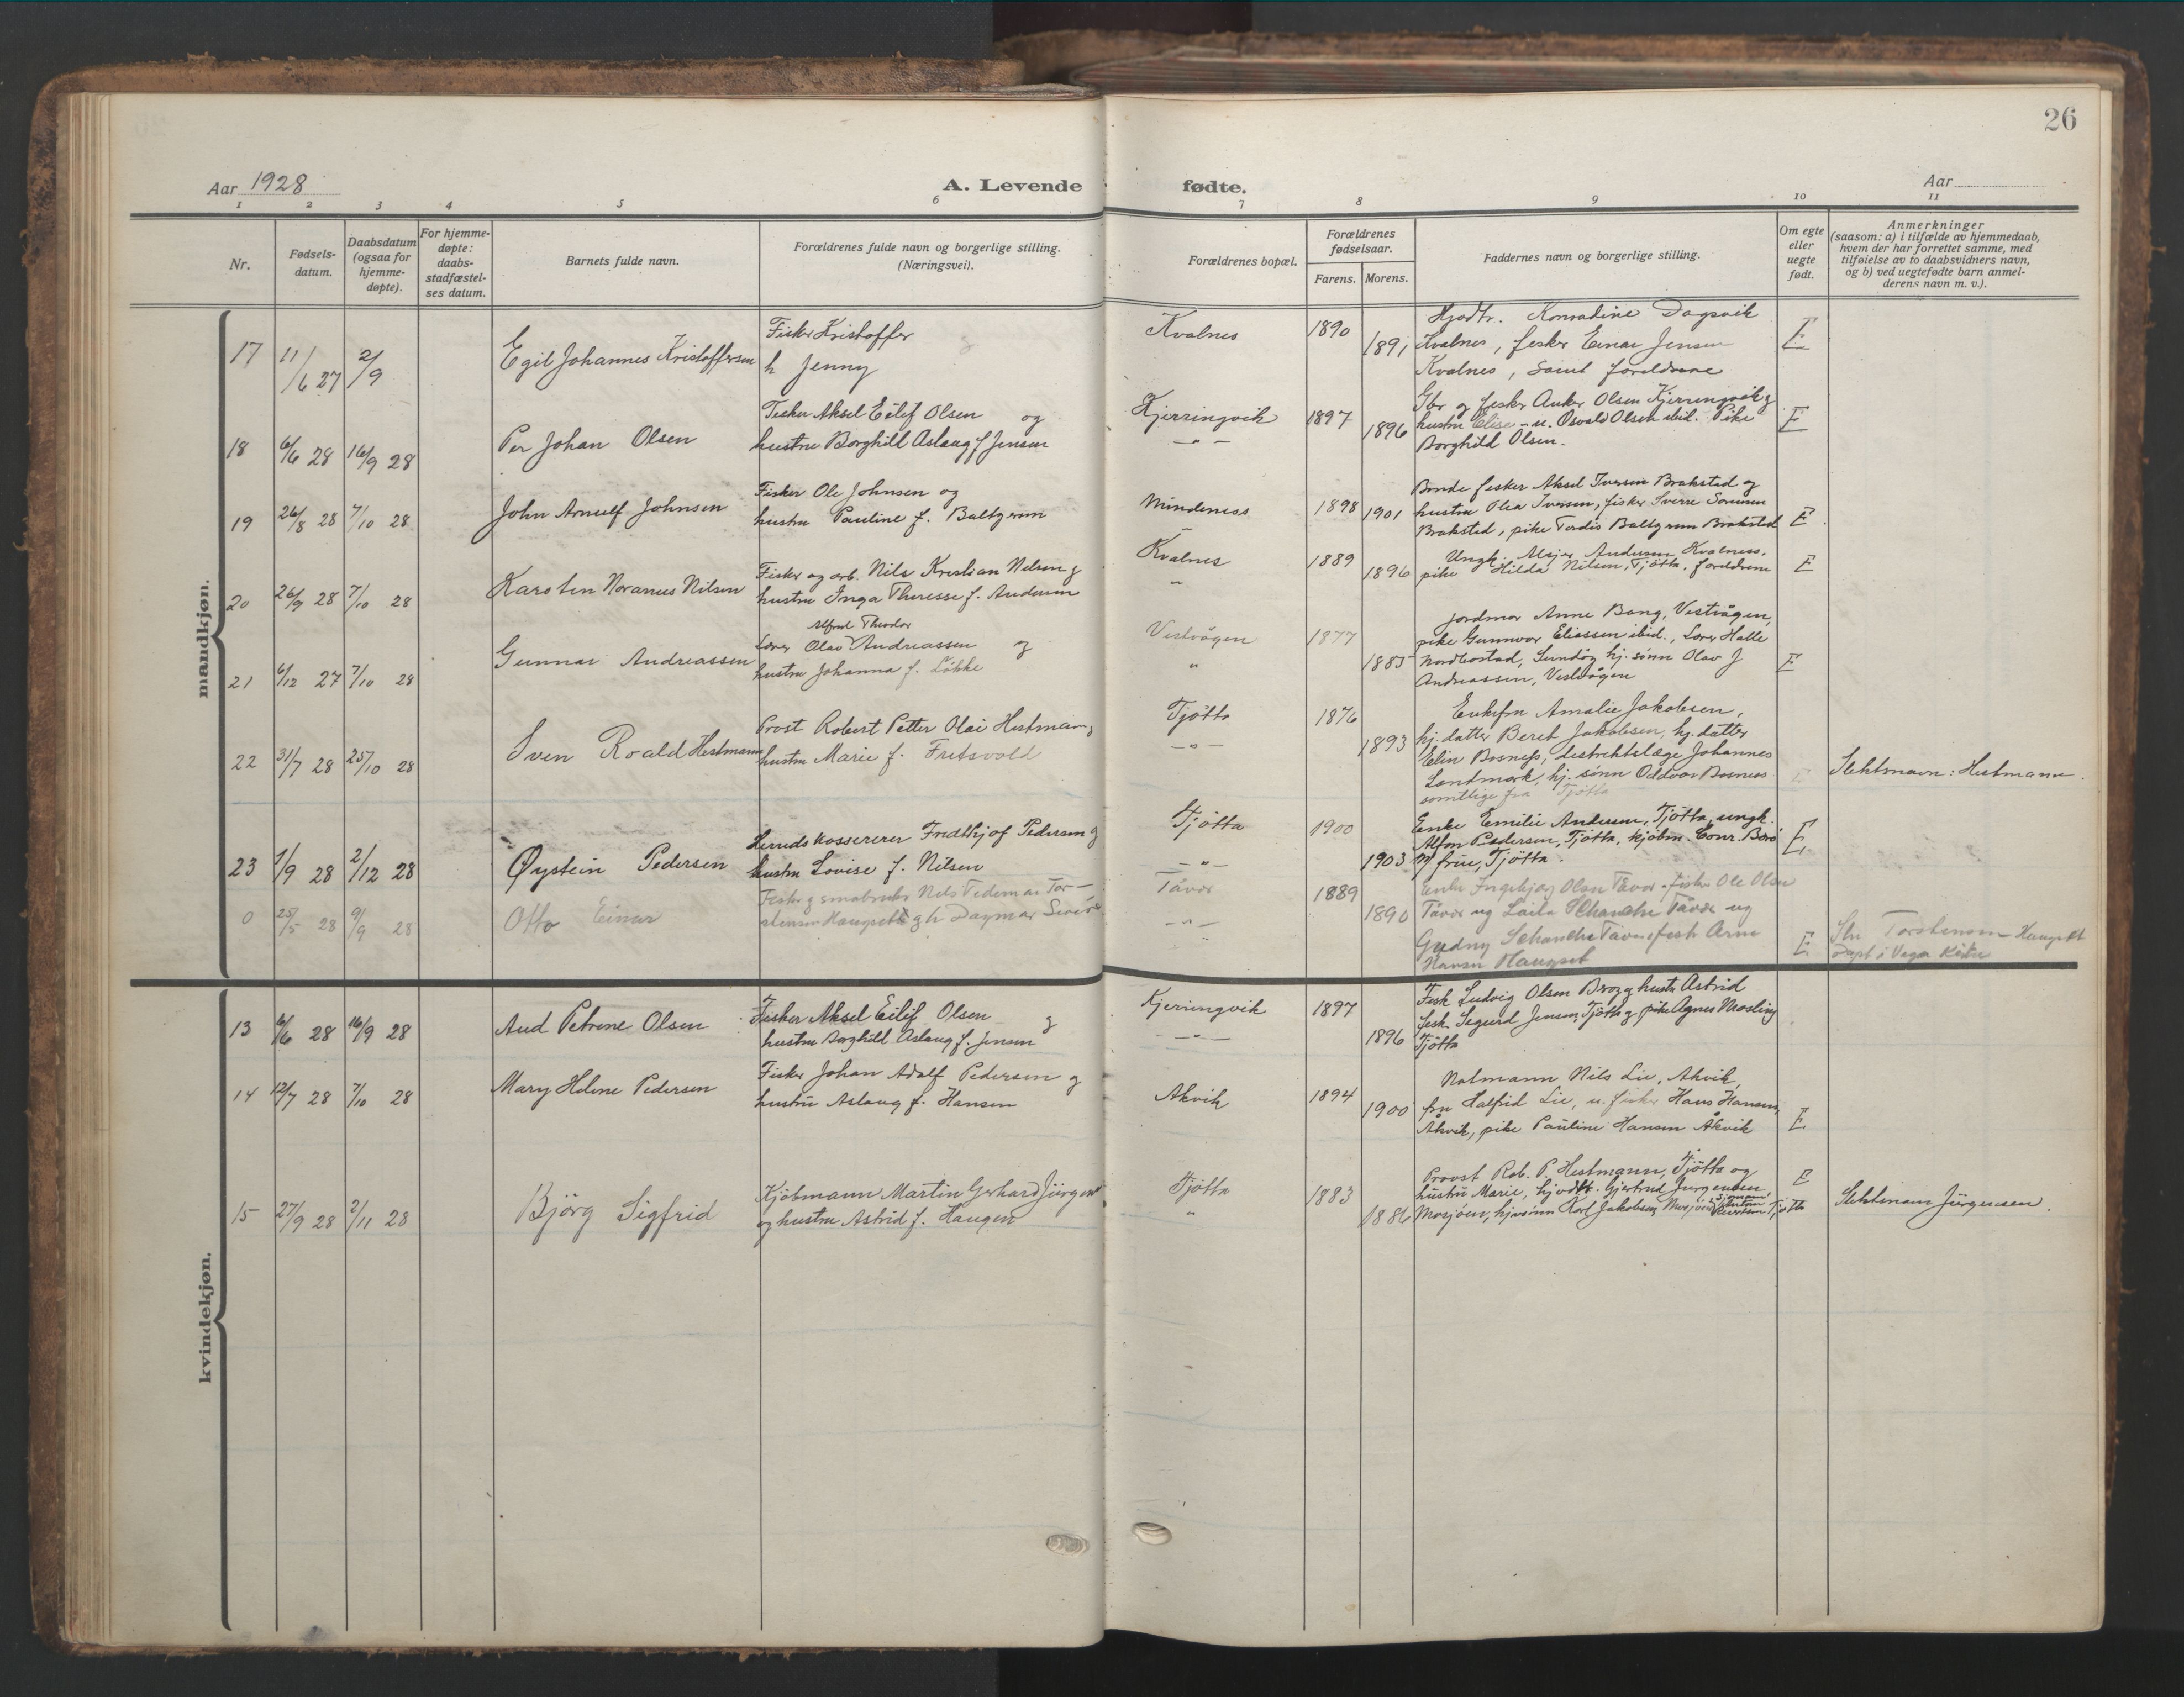 26
Aar 1928
A. Levende fødte.
Aar
1 2 3 4 5 6 7 8 9 10 11
Nr.
Fødsels-
datum.
Daabsdatum
(ogsaa for
hjemme-
døpte).
For hjemme-
døpte:
daabs-
stadfæstel-
ses datum.
Barnets fulde navn.
Forældrenes fulde navn og borgerlige stilling.
(Næringsvei).
Forældrenes bopæl.
Forældrenes
fødselsaar.
Farens. Morens.
Faddernes navn og borgerlige stilling.
Om egte
eller
uegte
født.
Anmerkninger
(saasom: a) i tilfælde av hjemmedaab,
hvem der har forrettet samme, med
tilføielse av to daabsvidners navn,
og b) ved uegtefødte barn anmel-
derens navn m. v.).
mandkjøn.
17 11/6 27 2/9
Egil Johannes Kristoffersen
Fisker Kristoffer
h Jenny
Kvalnes
1890
1891
Hjvdtr. Konradine Dagsvik
Kvalnes, fisker Einar Jensen
Kvalnes, samt foreldrene
E
18 6/6 28 16/9 28
Per Johan Olsen
Fisker Aksel Eilif Olsen og
hustru Borghild Aslaug f Jensen
Kjerringvik
— " —
1897
1896
Gbr og fisker Anker Olsen Kjerringvik og
hustru Elise - u. Osvald Olsen ibid. Pike
Borghild Olsen.
E
19 26/8 28 7/10 28
John Arnulf Johnsen
Fisker Ole Johnsen og
hustru Pauline f. Baltzersen
Mindeness
1898
1901
Bonde fisker Aksel Iversen Brakstad og
hustru Olea Iversen, fisker Sverre Sørensen
Brakstad, pike Tordis Baltzersen Brakstad
E
20 26/9 28 7/10 28
Karsten Noranus Nilsen
Fisker og arb. Nils Kristian Nilsen og
hustru Inga Theresse f. Andersen
Kvalnes
"
1889
1896
Ungk. Andersen Kvalness,
pike Hilda Nilsen, Tjötta, foreldrene
E
21 6/12 27 7/10 28
Gunnar Andreassen
Alfred Theodor
Lærer Olav Andreassen og
hustru Johanna f. Løkke
Vestvågen
"
1877
1885
jordmor Anne Bang, Vestvågen,
pike Gunnvor Eliassen ibid., Lærer Halle
Nordbostad, Sundøy hj. sønn Olav J
Andreassen, Vestvågen
E
22 31/7 28 25/10 28
Sven Roald Hestmann
Prost Robert Petter Olai Hestmann og
hustru Marie f. Fretsvold
Tjötta
— " —
1876
1893
Enkefru Amalie Jakobsen,
hj. datter Beret Jakobsen, hj. datter
Elin Bosness, distriktslæge Johannes
Landmark, hj. sønn Oddvar Bosness
samtlige fra Tjötta
E
Slektsnavn: Hestmann.
23 1/9 28 2/12 28
Øystein Pedersen
Herredskasserer Fredthjof Pedersen og
hustru Lovise f. Nilsen
Tjötta
— " —
1900
1903
Enke Emilie Andersen, Tjötta, ungk.
Alfon Pedersen, Tjötta, kjöbm. Conr. Barö
m/ frue, Tjötta.
E
0 25/5 28 9/9 28
Otto Einar
Fisker og småbruker Nils Tor-
stensen Haugset og h Dagmar
Tåvær
— " —
1889
1890
Enke Ingebjørg Olsen Tåvær - fisker Ole Olsen
Tåvær og Laila Schanche Tåvær og
Gudny Schanche Tåvær fisk Arne
Hansen Haugset
E
Torstensen - Haugset
døpt i Vega Kirke
kvindekjøn.
13 6/6 28 16/9 28
Aud Petrine Olsen
Fisker Aksel Eilif Olsen og
hustru Borghild Aslaug f. Jensen
Kjerringvik
— " —
1897
1896
Fisk Ludvig Olsen og hustr Astrid
fisk. Segurd Jensen, Tjötta og pike Agnes Mosling
Tjötta
14 12/7 28 7/10 28
Mary Helene Pedersen
Fisker Johan Adolf Pedersen og
hustru Aslaug f. Hansen
Akvik
1894
1900
Notmann Nils Lie, Akvik,
fru Halfrid Lie, u. fisker Hans Hansen,
Åkvik, pike Pauline Hansen Åkvik
E
15 27/9 28 2/11 28
Björg Sigfrid
Kjöbmann Martin Gerhard Jürgensen
og hustru Astrid f. Haugen
Tjötta
"
1883
1886
Provst Rob. P. Hestmann, Tjötta og
hustru Marie, hjvdtr. Gjertrud Jürgensen
Mosjöen, hjvsönn Karl Jakobsen Mosjöen Tjötta
E
Slektsnavn Jürgensen.